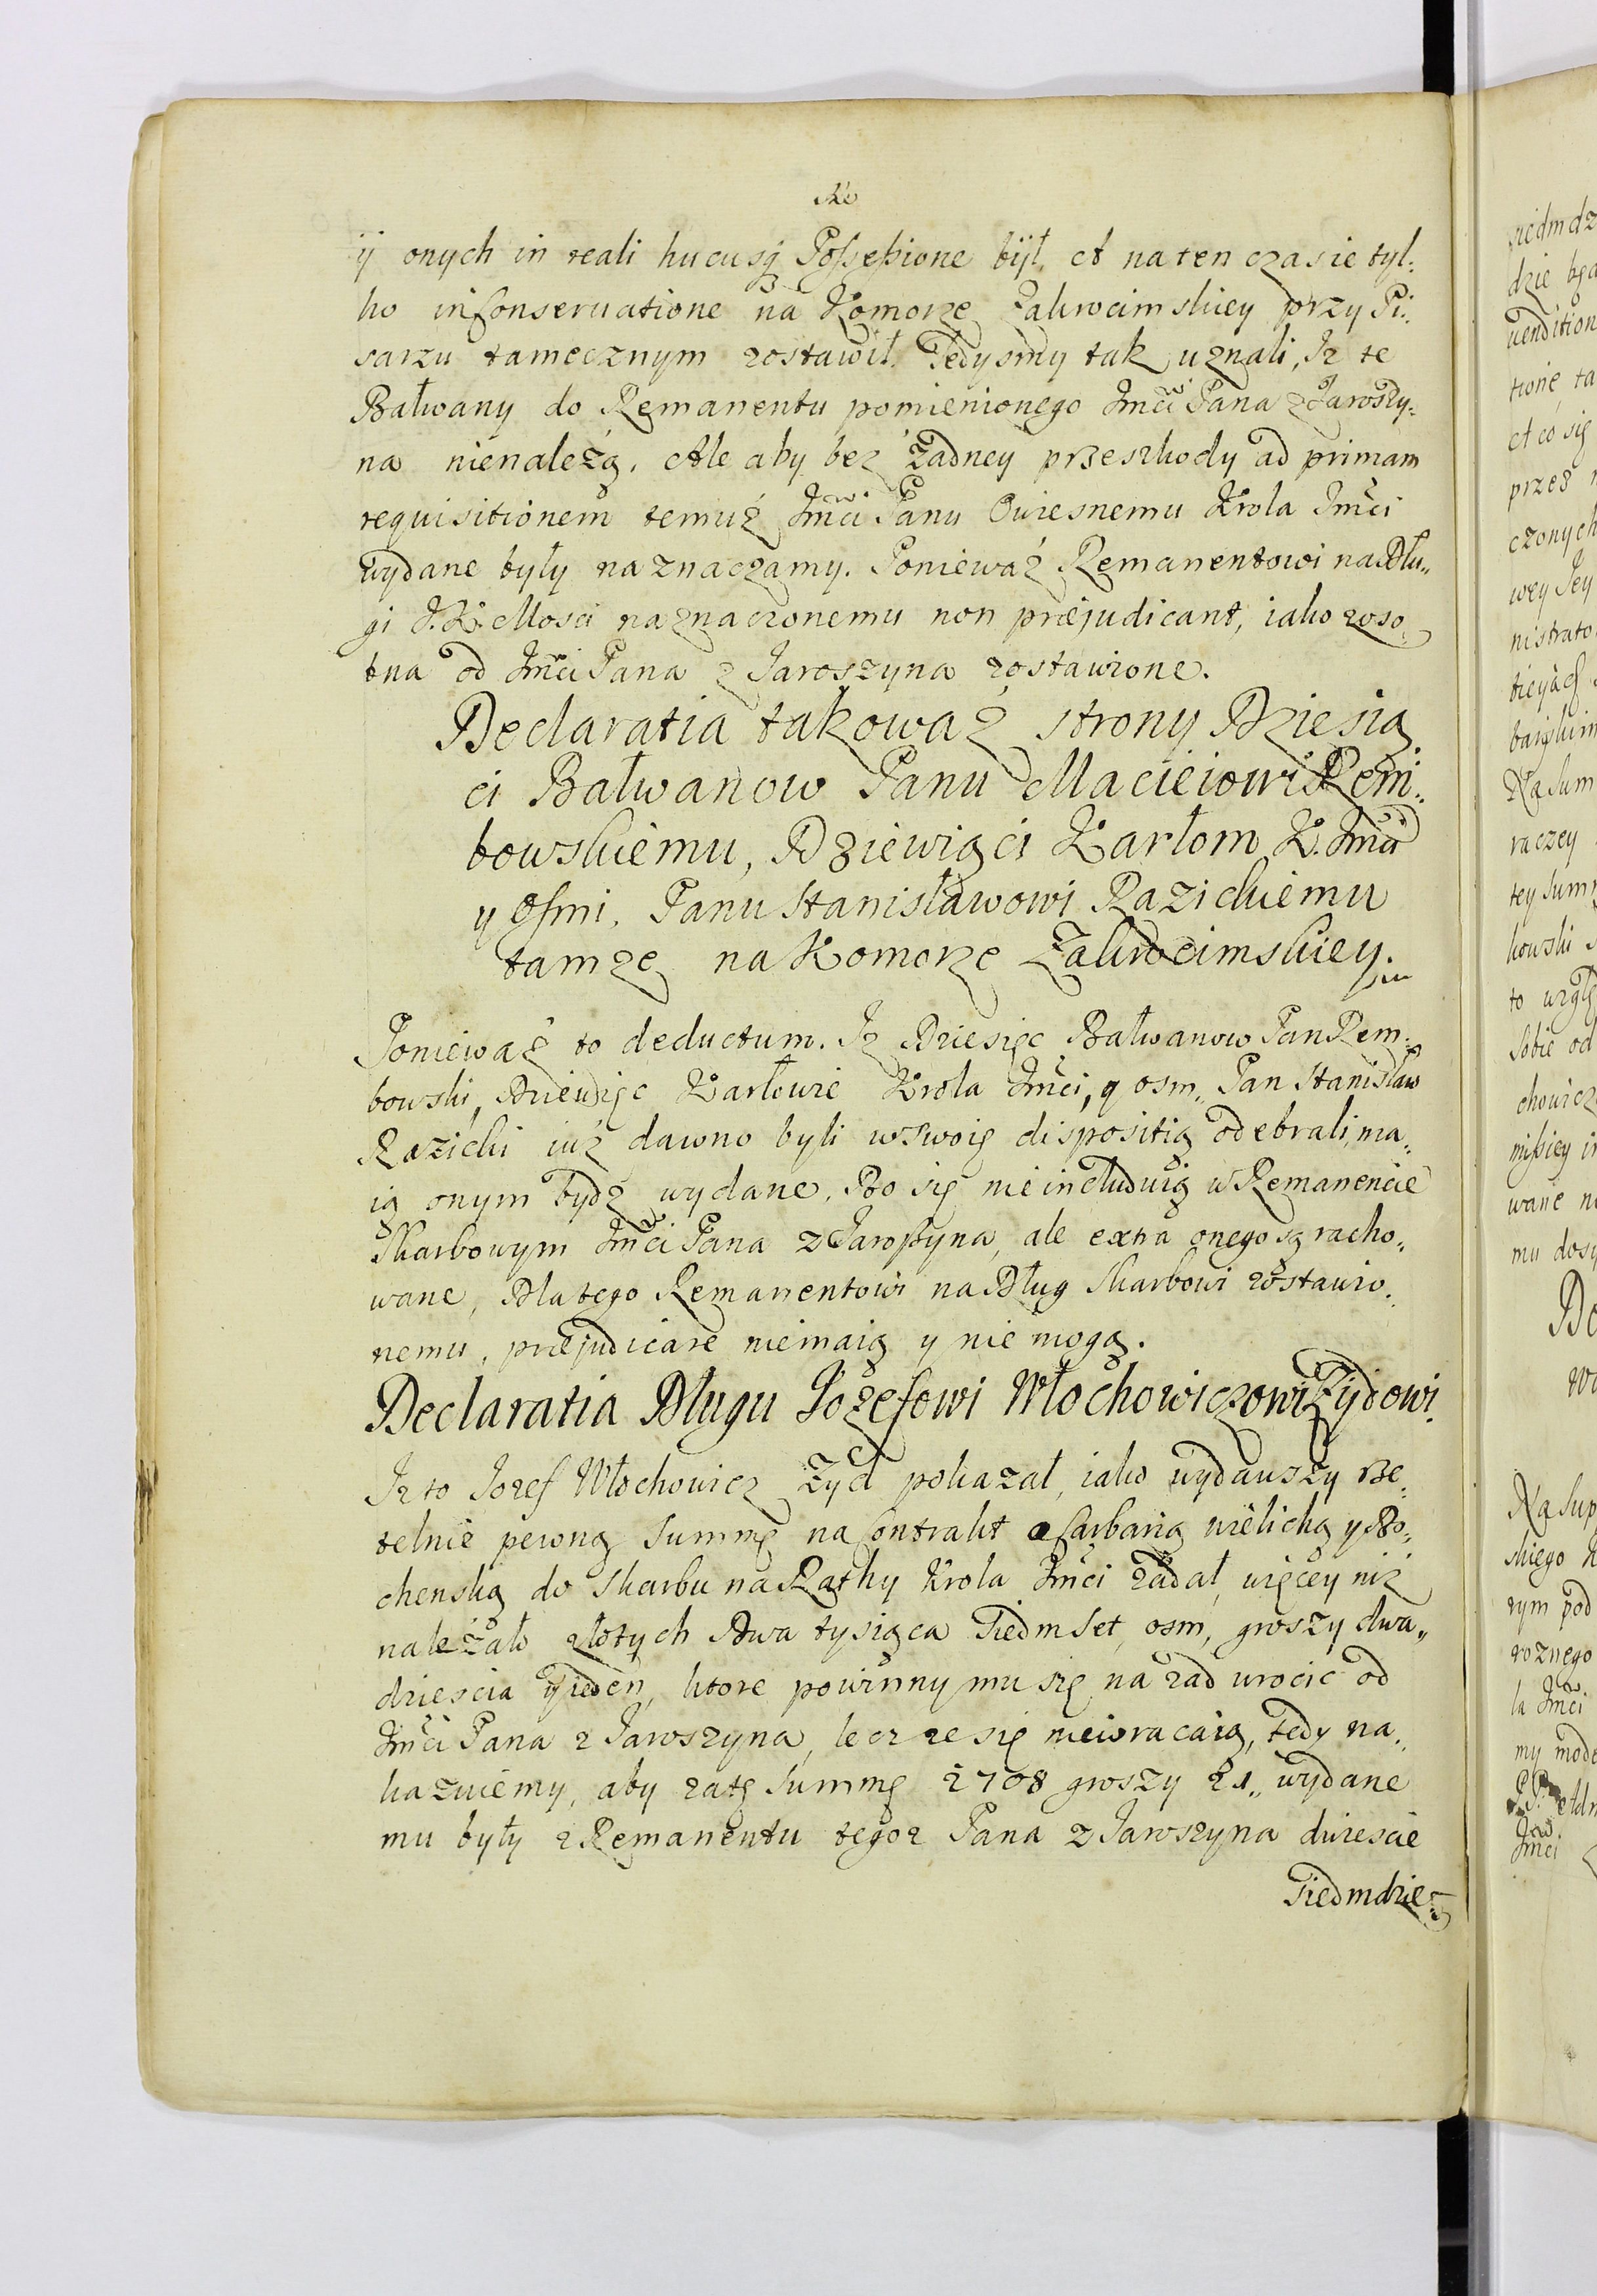 ÿ onych in reali hucusq Possessione był, et na ten czas ie tyl:
ko in Conservatione na Komorze Zakroćimskiey przy Pi:
sarzu tamecznym zostawił. Tedysmy tak uznali, Iz te
Bałwany do Remanentu pomienionego Jmći Pana z Jaroszy:
na nienalezą. Ale aby bez zadney przeszkody ad primam
requisitionem temuz Jmći Panu Owiesnemu Krola Jmći
wydane były naznaczamy. Poniewaz Remanentowi na Dłu:
gi J.K.Mosci naznaczonemu non præjudicant, iako zoso:
tna od Jmći Pana z Jaroszyna zostawione.
Declaratia takowaz strony Dziesią
ci Bałwanow Panu Macieiowi Rem:
bowskiemu, Dziewiąci Karłom K. Jmći
y Osmi, Panu Stanisławowi Razickiemu
tamze na Komorze Zakroćimskiey.
Poniewaz to deductum. Iz Dziesięc Bałwanow Pan Rem:
bowski, Dziewięc Karłowie Krola Jmći, y osm, Pan Stanisław
Razicki iuz dawno byli w swoię dispositią odebrali, ma:
ią onym bydz wydane. Bo się nie includuią w Remanencie
Skarbowym Jmći Pana z Jaroszyna, ale extra onego są racho:
wane, Dla tego Remanentowi na Dług Skarbowi zostawio:
nemu, præjudicare niemaią y nie mogą.
Declaratia Długu Jozefowi Włochowiczowi Zydowi.
Iz to Jozef Włochowicz Zyd pokazał, iako wydawszy rze:
telnie pewną Summę na Contrakt Arbarią wielicką y Bo:
chenską do Skarbu na Rathy Krola Jmći zadał, więcey niz
nalezało złotych Dwa tysiąca Siedmset, osm, groszy dwa:
dziescia y ieden, ktore powinny mu się na zad wrocic od
Jmći Pana z Jaroszyna, lecz ze się niewracaią, tedy na:
kazuiemy, aby za tę Summę 2708 groszy 21. wydane
mu były z Remanentu tegoz Pana z Jaroszyna dwiescie
Siedmdzie: